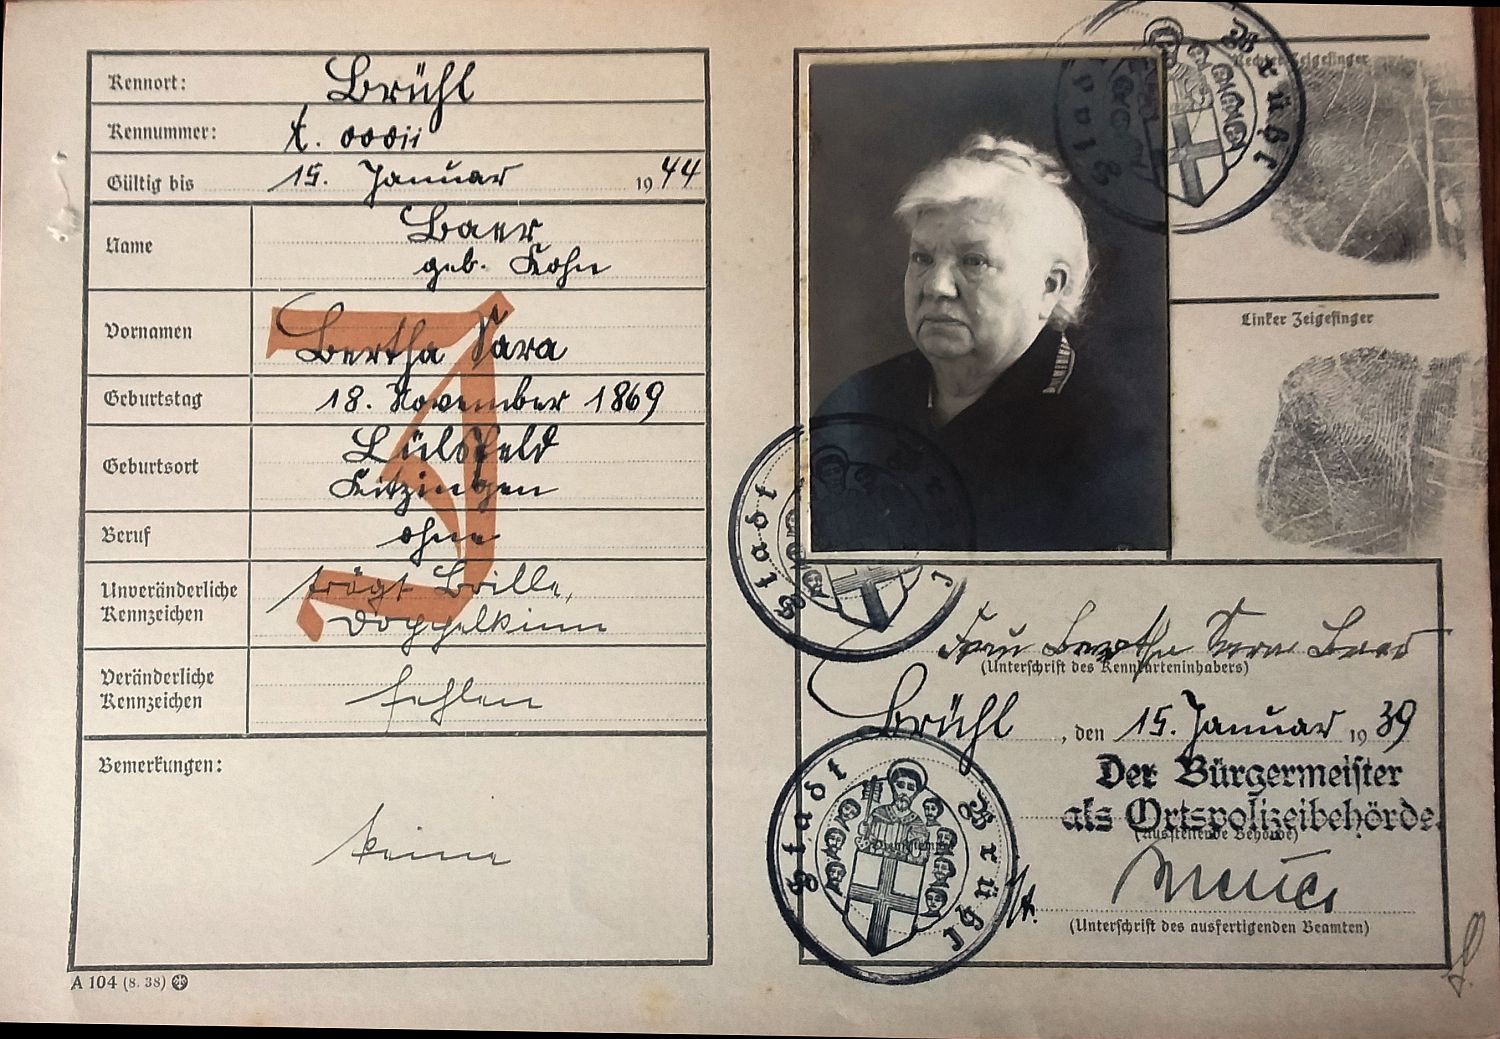 Kennort: Brühl
Kennummer: A. 00011
Gültig bis 15. Januar 1944
Name Baer
geb. Kohn
Vornamen Bertha Sara
J
Geburtstag 18. November 1869
Geburtsort Lülsfeld
Kitzingen
Beruf ohne
Unveränderliche Kennzeichen trägt Brille,
Doppelkinn
Veränderliche Kennzeichen fehlen
Bemerkungen:
keine
A 104 (8. 38)
Stadt Brühl
Rechter Zeigefinger
Linker Zeigefinger
Stadt Brühl
Frau Bertha Sara Baer
(Unterschrift des Kennkarteninhabers)
Brühl, den 15. Januar 1939
Der Bürgermeister
als Ortspolizeibehörde.
(Ausstellende Behörde)
Stadt Brühl
(Unterschrift des ausfertigenden Beamten)